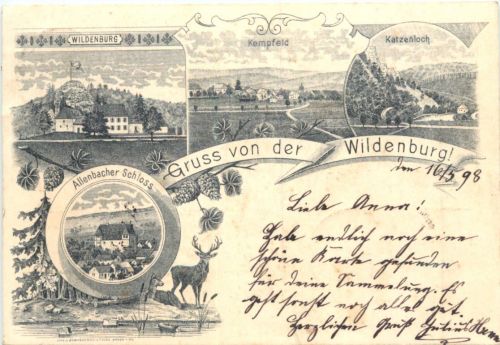 WILDENBURG
Kempfeld
Katzenloch.
Gruss von der Wildenburg!
Allenbacher Schloss.
den 16/5 98
Liebe Anna!
Habe endlich noch eine
schöne Karte gefunden
für deine Sammlung. Es
geht sonst noch alles gut.
Herzlichen Gruß